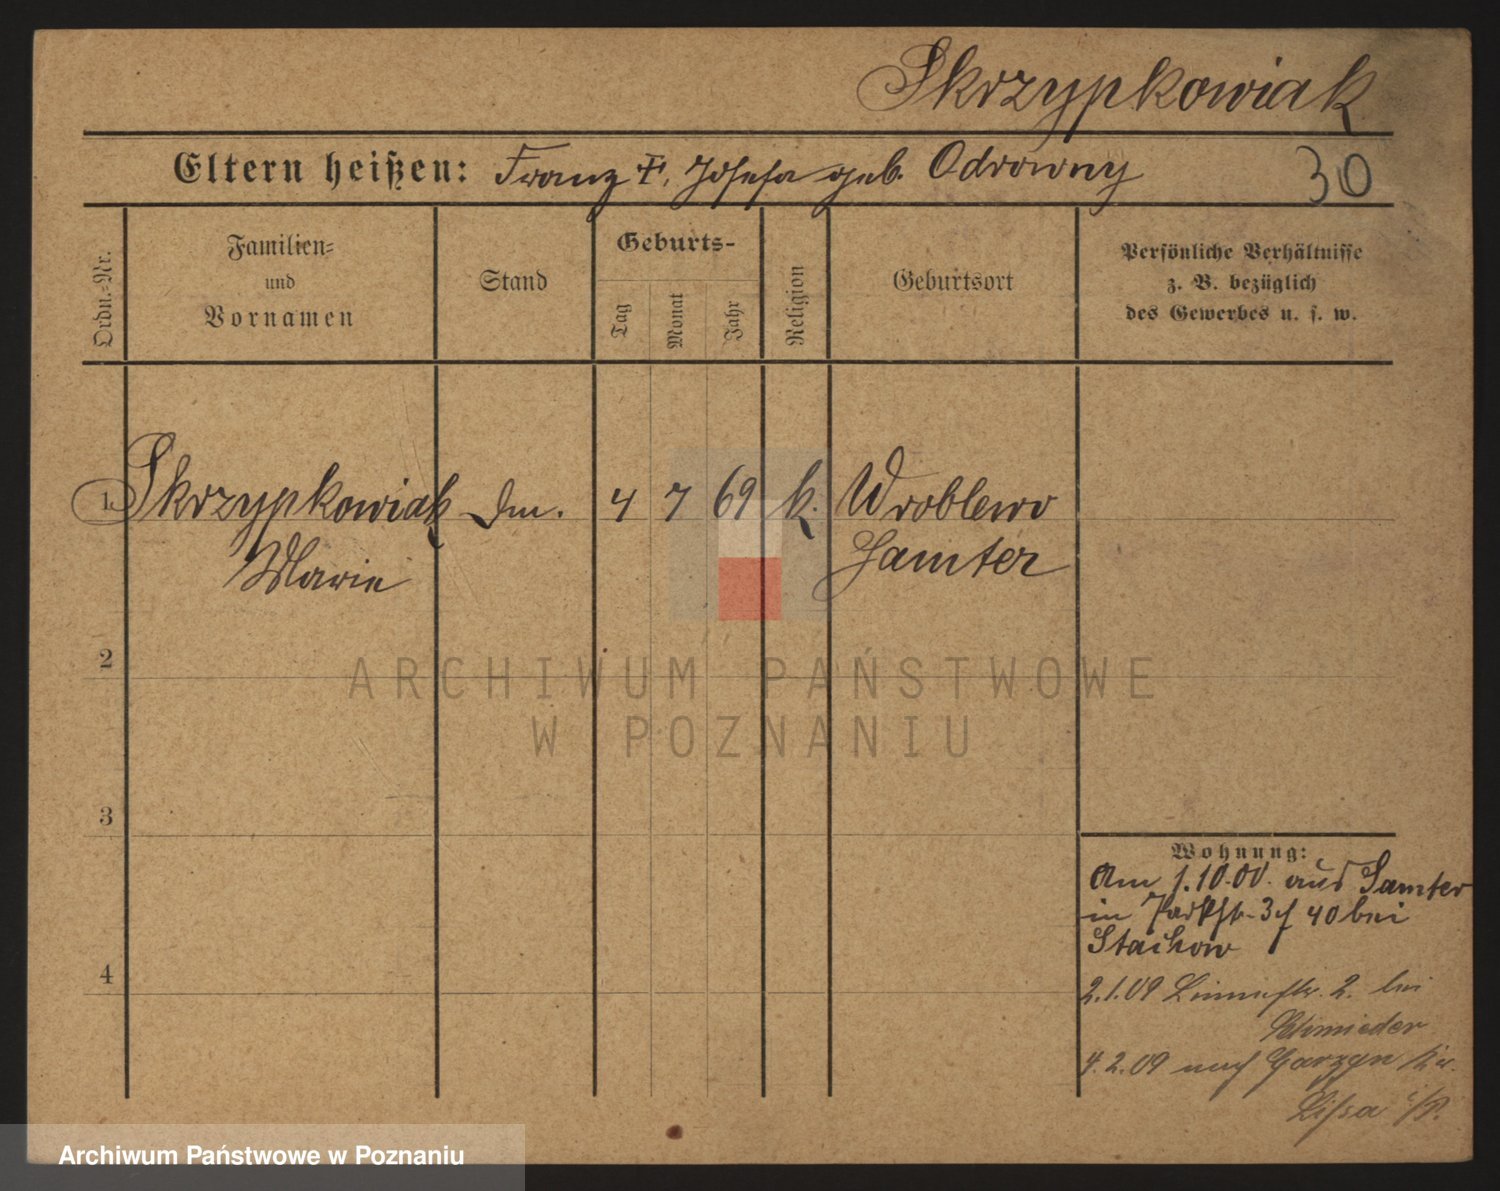 Skrzypkowiak
Eltern heißen: Franz †, Josefa geb. Odrowny
30
Ordn.=Nr.
Familien=
und
Vornamen
Stand
Geburts-
Tag
Monat
Jahr
Religion
Geburtsort
Persönliche Verhältnisse
z. B. bezüglich
des Gewerbes u. s. w.
1. Skrzypkowiak Dm. 4 7 69 k. Wroblewo
Marie Samter
2
ARCHIWUM PAŃSTWOWE
W POZNANIU
3
Wohnung:
Am 1.10.00. aus Samter
in Parkstr. 3 40 bei
Stachow
4
2.1.09 2. bei
Schmieder
4.2.09 nach Garzyn Kr.
Lissa i/P.
Archiwum Państwowe w Poznaniu